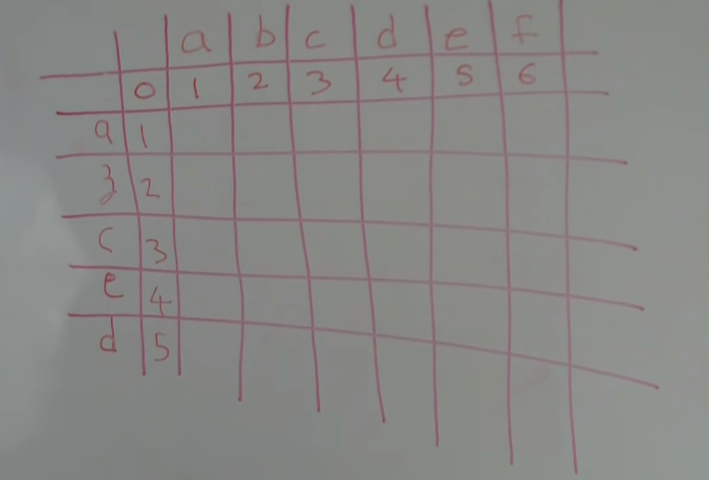 a b c d e f
0 1 2 3 4 5 6
a 1
z 2
c 3
e 4
d 5